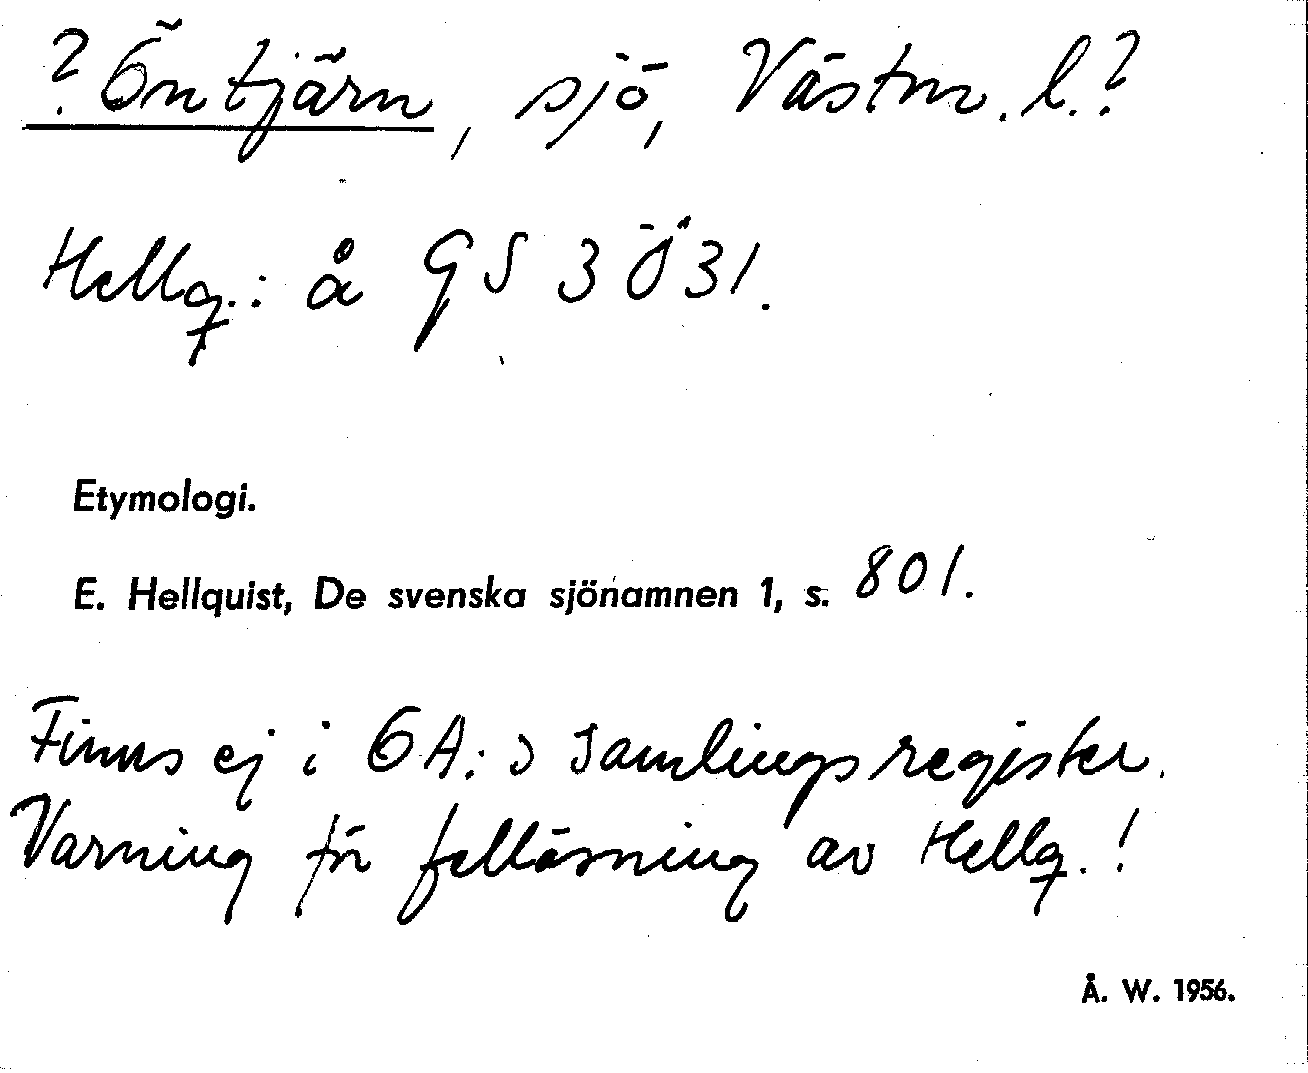 ? Öntjärn, sjö, Västm. l.?
Hellq.: å GS 3 Ö 31.
Etymologi.
E. Hellquist, De svenska sjönamnen 1, s. 801.
Finns ej i OA:s samlingsregister.
Varning för felläsning av Hellq.!
Å. W. 1956.